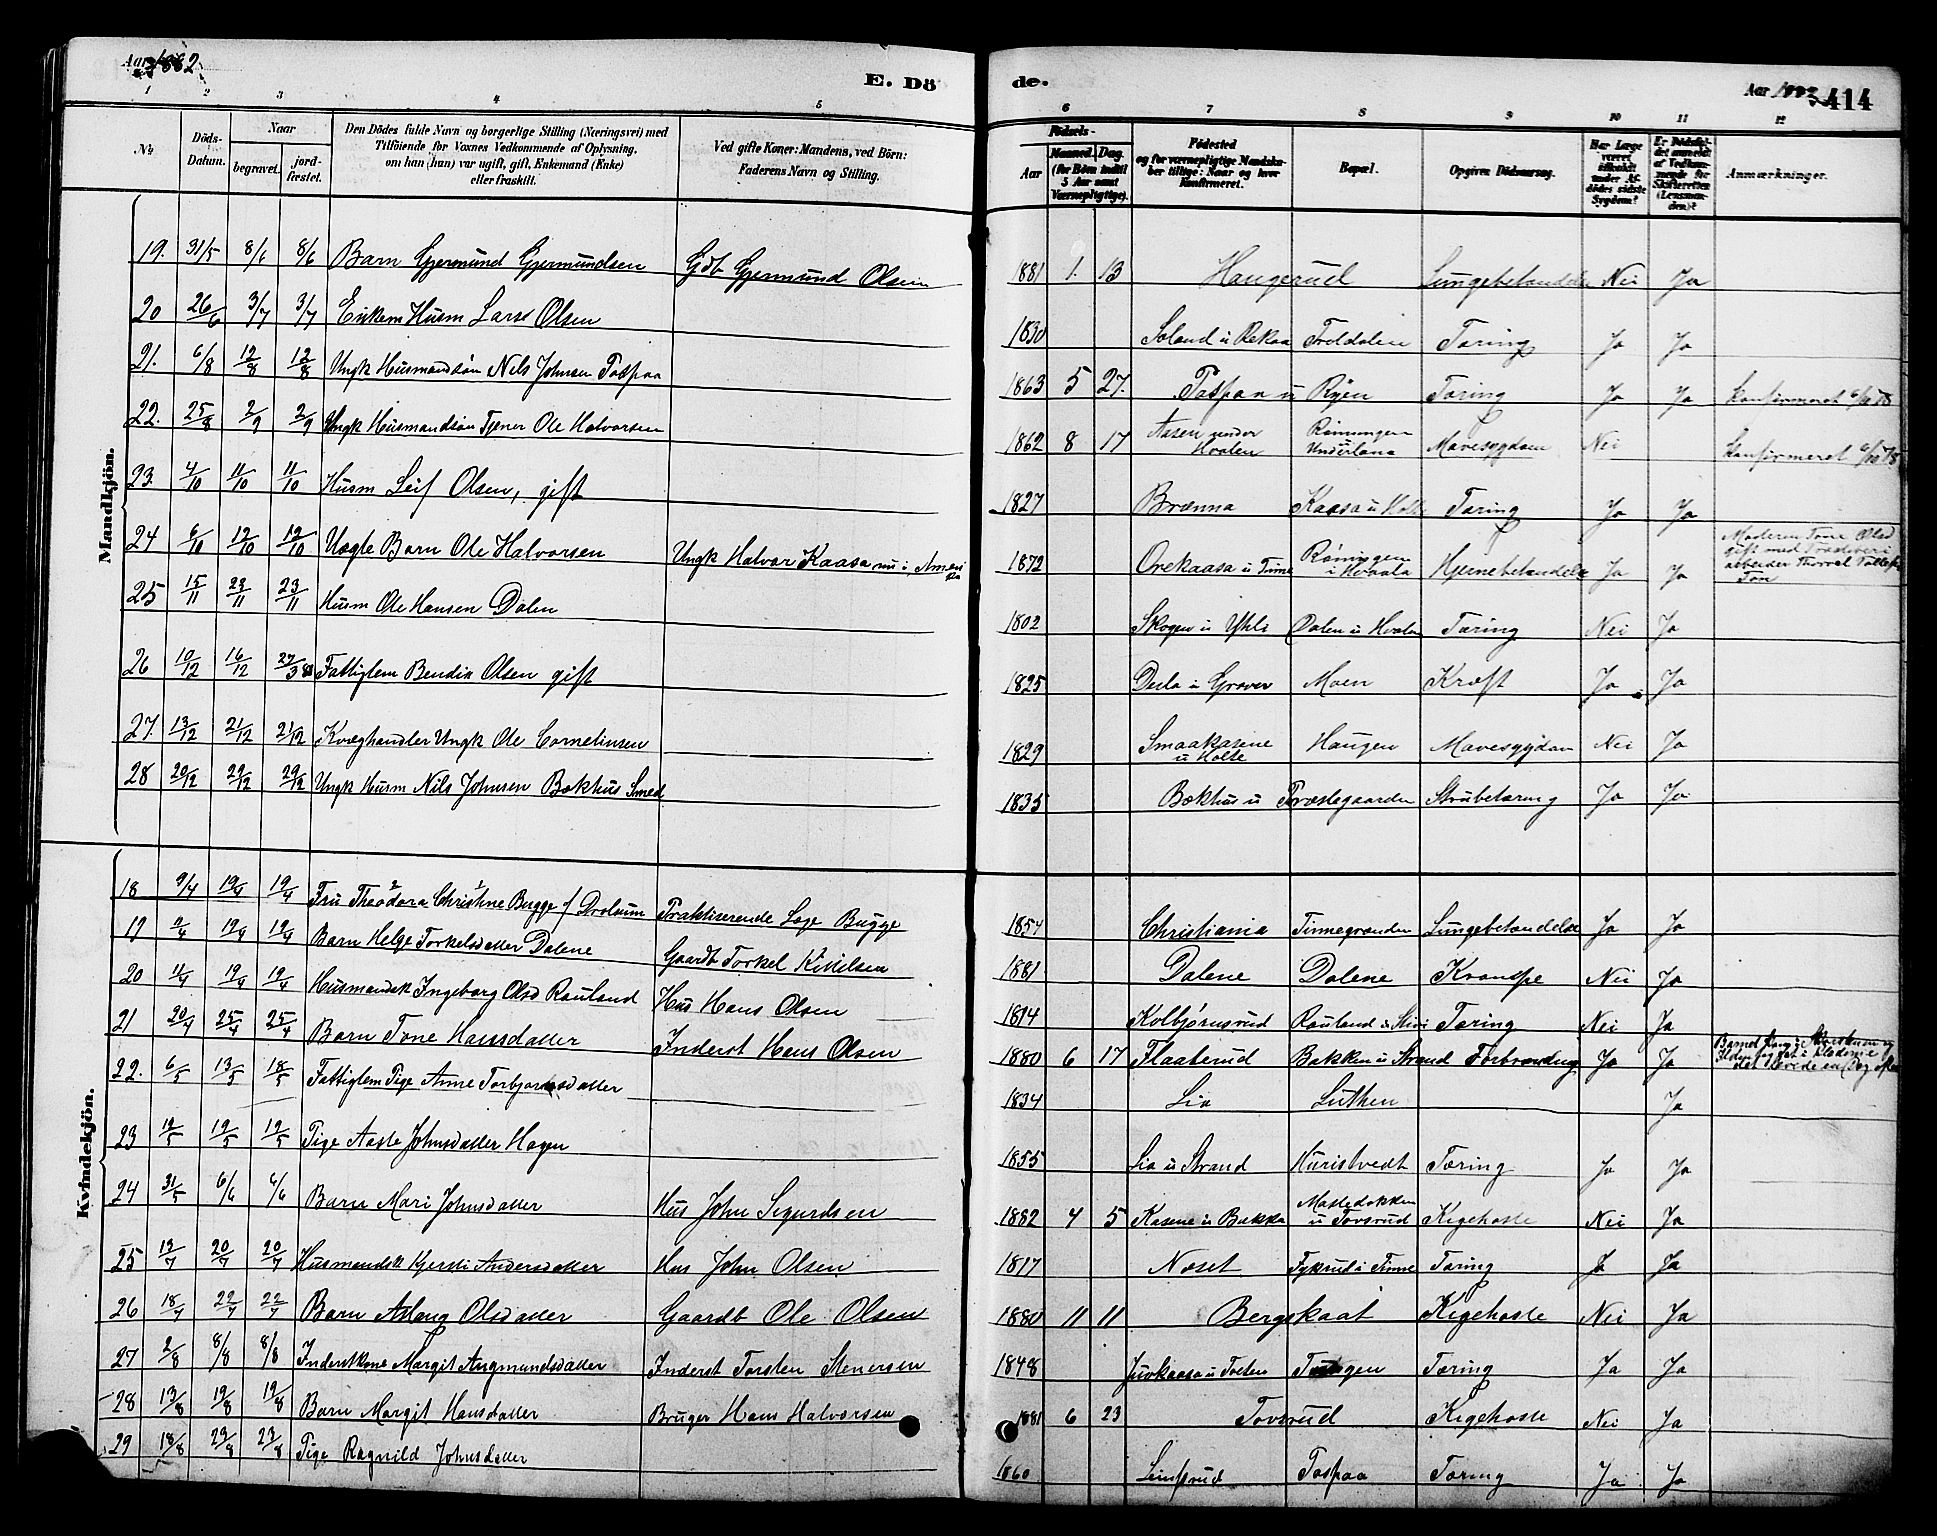 Aar 1882
E. Dö
de.
Aar 1882
414
1 2 3 4 5
6 7 8 9 10 11 12
No
Döds-Datum.
Naar
begravet.
jord-fæstet.
Den Dödes fulde Navn og borgerlige Stilling (Næringsvei) med
Tilföiende for Voxnes Vedkommende af Oplysning,
om han (hun) var ugift, gift, Enkemand (Enke)
eller fraskilt.
Ved gifte Koner: Mandens, ved Börn:
Faderens Navn og Stilling.
Födsels-
Aar
Maaned. Dag.
(for Börn indtil
5 Aar samt
Værnepligtige).
Födested
og for værnepligtige Mandska-
ber tillige: Naar og hvor
Konfirmeret.
Bopæl.
Opgiven Dödsaarsag.
Har Læge
været
tilkaldt
under Af-
dödes sidste
Sygdom?
Er Dödsfal-
det anmeldt
af Vedkom-
mende for
Skifteretten
(Lensman-
den)?
Anmærkninger.
Mandkjön.
19. 31/5 8/6 8/6 Barn Gjermund Gjermundsen Gdb Gjermund Olsen 1881 1. 13 Haugerud Lungebetændelse Nei Ja
20 26/6 3/7 3/7 Enkem Husm Lars Olsen 1830 Soland u Rekaa Troldalen Tæring Ja Ja
21. 6/8 12/8 12/8 Ungk Husmandsön Nils Johnsen Taspaa 1863 5 27. Taspaa u Ryen Tæring Ja Ja Konfirmeret 6/10 78
22. 25/8 2/9 2/9 Ungk Husmandsön Tjener Ole Halvorsen 1862 8 17 Aasen under Hvalen Mavesygdom Nei Konfirmeret 6/10 78
23. 4/10 11/10 11/10 Husm Leif Olsen, gift 1827 Brænna Kaasa u Holte Tæring Ja Ja
24 6/10 12/10 12/10 Uægte Barn Ole Halvorsen Ungk Halvor Kaasa nu i Amerika 1872 Orekaasa u Tinne Röningen u Hvaala Hjernebetændelse Ja Ja Moderen Tone Olsd gift med Træskver arbeider Thorval
25 15/11 23/11 23/11 Husm Ole Hansen Dalen 1802 Skogen u Yhli Dalen u Hvalen Tæring Nei Ja
26 10/12 16/12 27/3 83 Fattiglem Bendik Olsen gift 1825 Dæla u Graver Moen Kræft Ja Ja
27. 13/12 21/12 21/12 Kvæghandler Ungk Ole Cornelinsen 1829 Smaakasene u Holte Haugen Mavesygdom Nei Ja
28 20/12 29/12 29/12 Ungk Husm Nils Johnsen Bakhus Smed 1835 Bækhus u Præstegaarden Strubetæring Ja Ja
Kvindekjön.
18 9/4 19/4 19/4 Fru Theodora Christine Bugge f Drolsum Praktiserende Læge Bugge 1854 Christiania Tinnegranden Lungebetændelse Ja Ja
19 9/4 19/4 19/4 Barn Helge Torkelsdatter Dalene Gaardb Torkel Kittilsen 1881 Dalene Dalene Krampe Nei Ja
20 11/4 19/4 19/4 Husmandsk Ingeborg Olsd Rauland Hus Hans Olsen 1814 Kolbjörnsrud Rauland u Tæring Nei Ja
21 20/4 25/4 25/4 Barn Tone Hansdatter Inderst Hans Olsen 1880 6 17 Flaaterud Bakken u Strand Forbrænding Ja Ja Barnet
22. 6/5 13/5 18/5 Fattiglem Pige Anne Torbjornsdatter 1834 Lia Luthen Ja
23 12/5 19/5 19/5 Pige Aaste Johnsdatter Hagen 1855 Lia u Strand Kuristvedt Tæring Ja Ja
24 31/5 6/6 6/6 Barn Mari Johnsdatter Hus John Sigurdsen 1882 4 5 Kasene u Bakka Mastebakken u Tovsrud Kighoste Nei Ja
25 13/7 20/7 20/7 Husmandsk Kjersti Andersdatter Hus John Olsen 1817 Næset Fykrud u Tinne Tæring Ja Ja
26 18/7 22/7 22/7 Barn Aslaug Olsdatter Gaardb Ole Olsen 1880 11 11 Bergskaat Kigehoste Nei Ja
27 2/8 8/8 8/8 Inderstkone Margit Angmundsdatter Inderst Torsten Stenersen 1848 Jurkaasa u Tveten Tungen Tæring Ja Ja
28 13/8 19/8 19/8 Barn Margit Hansdatter Bruger Hans Halvorsen 1881 6 23 Tovsrud Kigehoste Nei Ja
29 18/8 23/8 23/8 Pige Ragnild Johnsdatter 1860 Leifsrud Taspaa Tæring Ja Ja